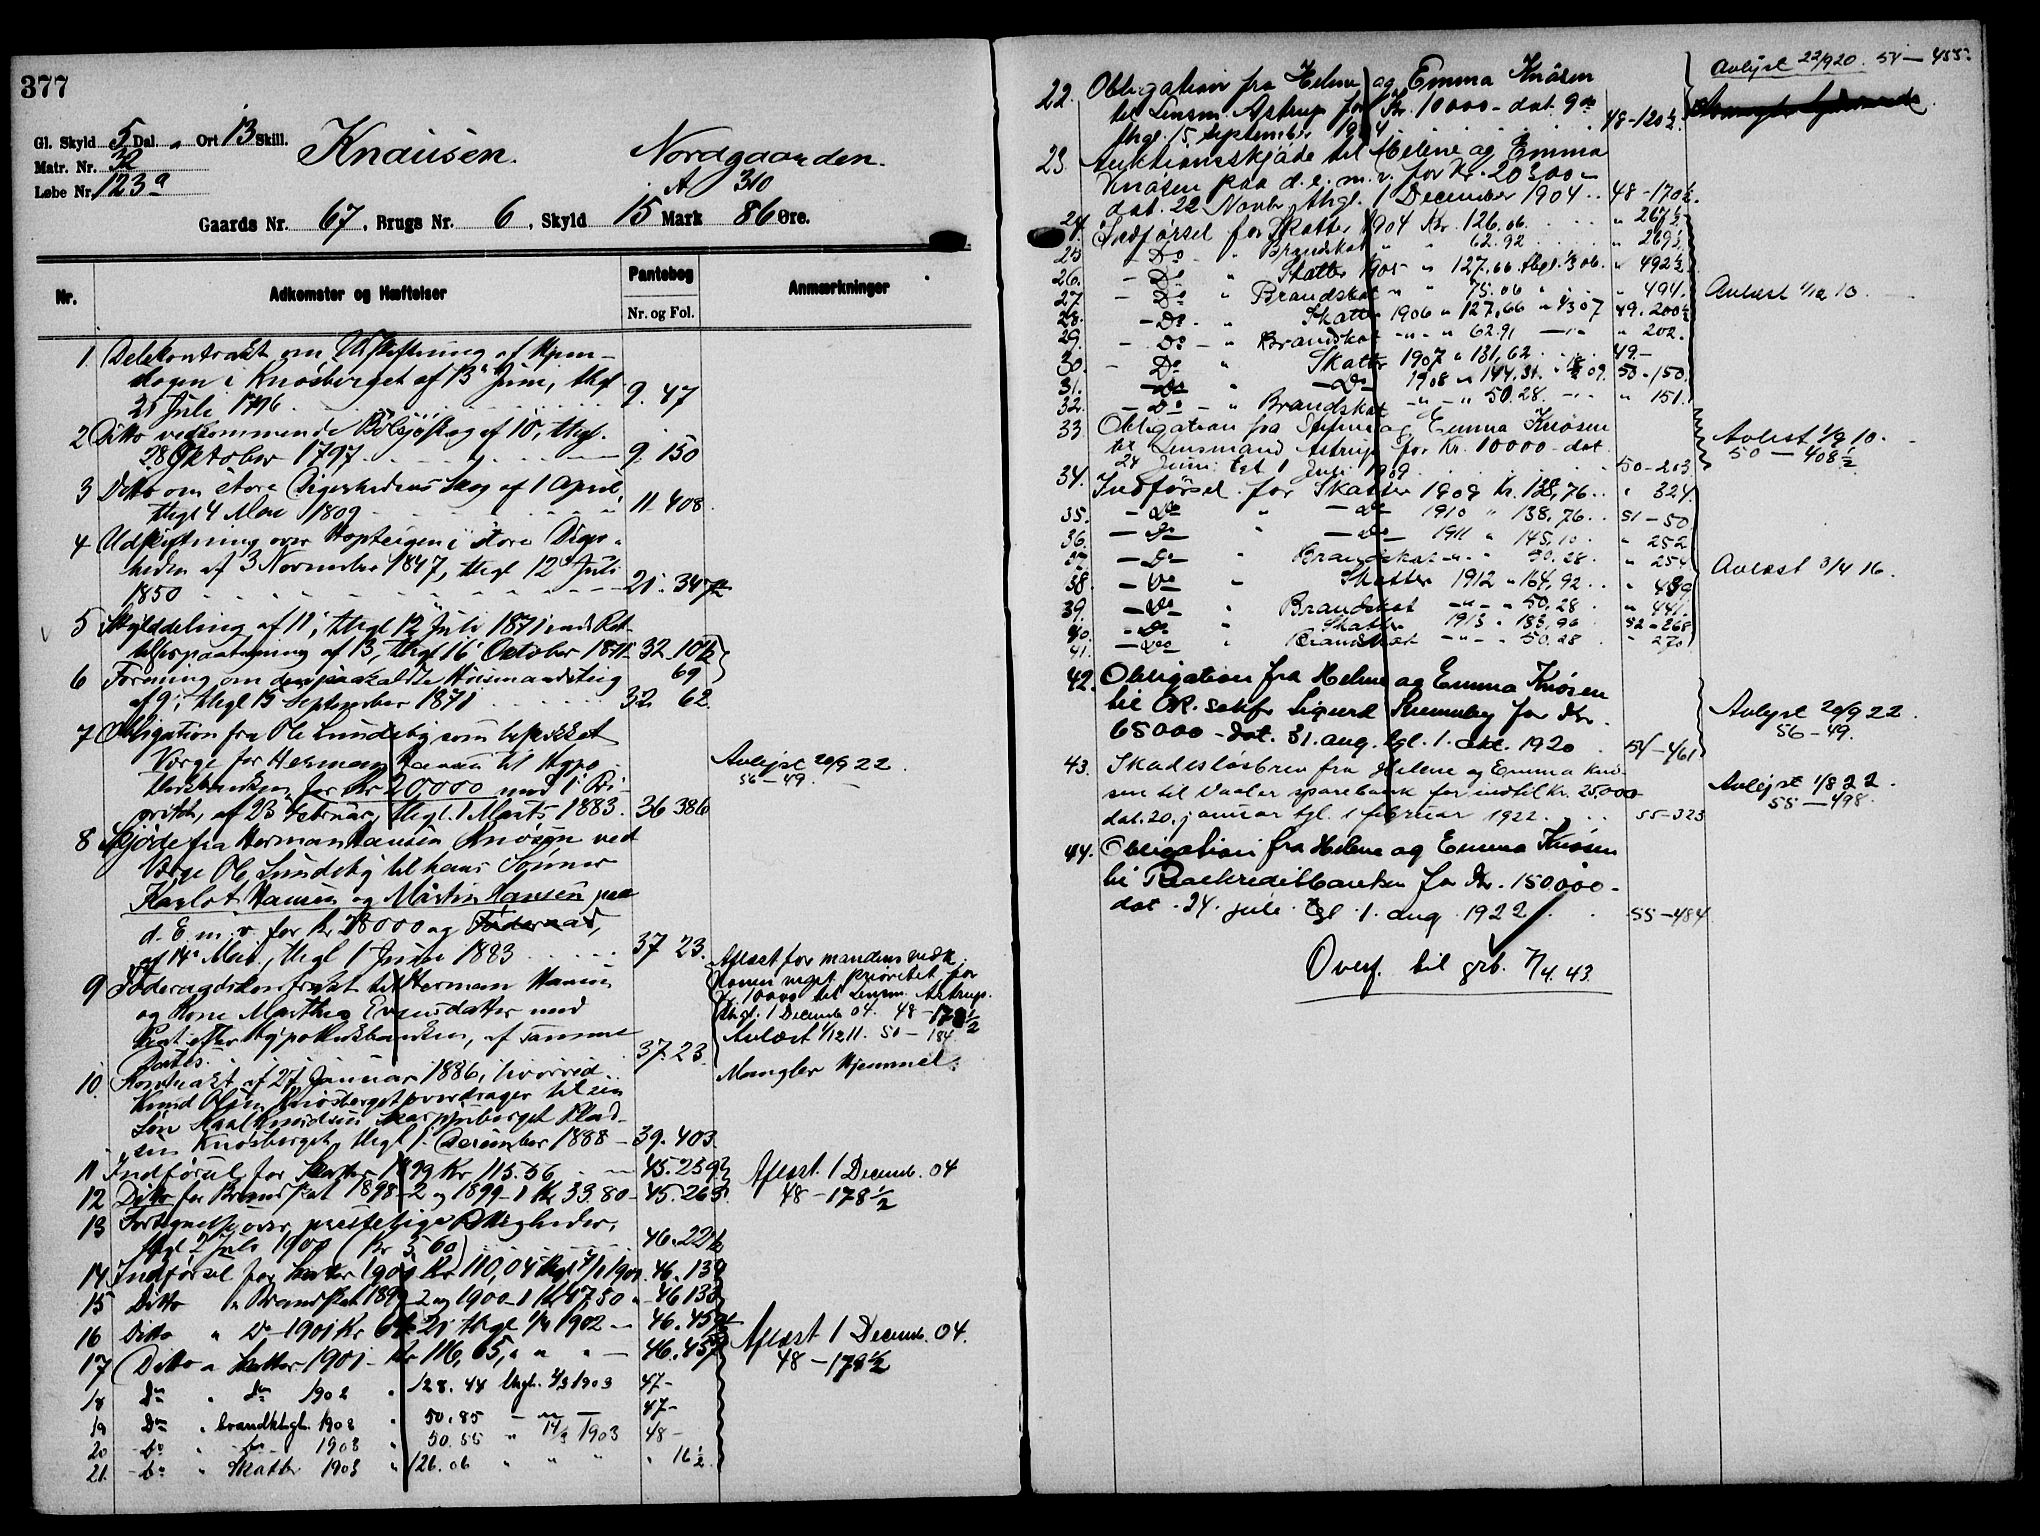 377
Gl. Skyld 5 Dal. " Ort 13 Skill.
Matr. Nr. 32
Løbe Nr. 123a
Knausen. Nordgaarden.
A 310
Gaards Nr. 67, Brugs Nr. 6, Skyld 15 Mark 86 Øre.
Nr. Adkomster og Hæftelser Pantebog Anmærkninger
Nr. og Fol.
1 Delekontrakt om Udskiftning af Hjem-
skogen i Knøsberget af 13 Juni, thgl.
21 Juli 1796 9. 47
2 Ditto vedkommende af 10, thgl.
28 Oktober 1797 9. 150
3 Ditto om store Digerhedens Skog af 1 April,
thgl 4 Mai 1809 11. 408
4 Udskiftning over i store Diger-
heden af 3 November 1847, thgl 12 Juli
1850 21. 347
5 Skylddeling af 11, thgl 12 Juli 1871 med Ret-
telsespaategning af 13, thgl 16 Oktober 1871 32. 10
69
6 Forening om den saakaldte
af 9, thgl 15 September 1871 32 62.
7 Obligation fra Ole Lundeby som beskikket
Værge for Herman Hansen til Hypo-
thekbanken for Kr 20,000 med 1 Pri-
oritet, af 23 Februar, thgl. 1 Marts 1883. 36 386
Avlyst 20/9 22.
56-49.
8 Skjøde fra Herman Hansen Knøsen ved
Værge Ole Lundeby til hans Sønner
Karlot Hansen og Martin Hansen paa
d. E m. v. for Kr 28000 og Føderaad,
af 14 Mai, thgl 1 Juni 1883 37 23.
9 Føderaadskontrakt til Herman Hansen
og Kone Marthe Evensdatter med
Prioritet efter Hypothekbanken, af samme
Dato. 37. 23.
Aflæst for mandens vedk.
Konen veget Prioritet for
Kr. 10000 til Lensm. Astrup.
thgl. 1 Decemb 04. 48-178 1/2
Avlæst 1/12 11. 50-184
10. Kontrakt af 27 Januar 1886, hvorved
Knud Olsen Knøsberget overdrager til sin
Søn Knudsen Plad-
sen Knøsberget, thgl 1 December 1888 39. 403.
Mangler Hjemmel.
11 Indførsel for Skatter 1899 Kr 115.56 45. 259
12 Ditto for Brandskat 1898-2 og 1899-1 Kr 33.80 45. 263
Aflæst 1 Decemb. 04
48-178 1/2
13 Fortegnelse over præstelige Rettigheder,
thgl 2 Juli 1900 (Kr 5,60) 46. 22
14 Indførsel for Skatter 1900 Kr 110,04 thgl 1901. 46. 139
15 Ditto " Brandskat 1899-2 og 1900-1 Kr 47,50 46 138
16 Ditto " Do 1901 Kr 64,21 thgl 1902 46. 45
17 Ditto " Skatter 1901 Kr 116,65, " " " 46. 457
18 Do " Do 1902 " 128.44 thgl. 4/3 1903 47-
19 Do " brandktgt. 1902 " 50.85 — " — 47-
20 Do " Do 1903 " 50.55 " 14/3 1903 48-
21. Do " Skatter 1903 " 126.06 " " " " 16 1/2
Aflæst 1 Decemb. 04.
48-178 1/2
22. Obligation fra Helene og Emma Knøsen
til Lensm. Astrup for Kr. 10000 - dat. 9de
thgl. 15 September 1904 48-120 1/2.
Avlyst 22/9 20. 54-455.
23. Auktionsskjøde til Helene og Emma
Knøsen paa d. e. m. v. for Kr. 20300-
dat. 22 Novbr, thgl. 1 December 1904 48-170 1/2.
24. Indførsel for Skatter 1904 Kr. 126,06. " 267 1/2
25 - Do - " Brandskat " " 62.92 " 269 1/2
26. - Do " Skatter 1905 " 127,66. thgl. 1/3 06. " 492 1/2
27 - Do " Brandskat " " 75.06 " " 494.
28. - Do - " Skatter 1906 " 127,66 " 1/3 07 49. 200 1/2
29. - Do - " Brandskat -"- " 62.91 -"- " 202.
30. - Do " Skatter 1907 " 131,62 49.-
31. - Do " - Do - 1908 " 144,31. 09. 50-150.
32. - Do - " Brandskat -"- " 50.28. -"- " 151.
Avlæst 1/12 13
33 Obligation fra Helene og Emma Knøsen
til Lensmand Astrup for Kr. 10000 - dat.
24 Juni: tgl 1 Juli 1909 50-203
Avlæst 1/9 10.
50-408 1/2
34. Indførsel for Skatter 1909 Kr. 138,76 " 324.
35. - Do " - Do - 1910 " 138,76 51-50
36. - Do " - Do - 1911 " 145,10 " 252
37. - Do " Brandskat -"- " 50.28. " 254
38. - Do " Skatter 1912 " 164,92 " 439
39. - Do " Brandskat -"- " 50,28 " 441.
40. - Do " Skatter 1913 " 133,96 52-268
41. - Do " Brandskat -"- " 50.28 " 270
Avlæst 3/4 16.
42. Obligation fra Helene og Emma Knøsen
til OR. sakf. Sigurd for Kr.
65000 - dat. 31. aug. tgl. 1. okt. 1920 54-461
Avlyst 20/9 22.
56-49.
43. Skadesløsbrev fra Helene og Emma Knø-
sen til Vaaler sparebank for indtil Kr. 25.000
dat. 20. januar tgl. 1 februar 1922. 55-323
Avlyst 1/8 22.
55-498.
44. Obligation fra Helene og Emma Knøsen
til Realkreditbanken for Kr. 150.000-
dat. 24. juli tgl. 1. aug. 1922 55-484
Overf. til grb. 7/4. 43.